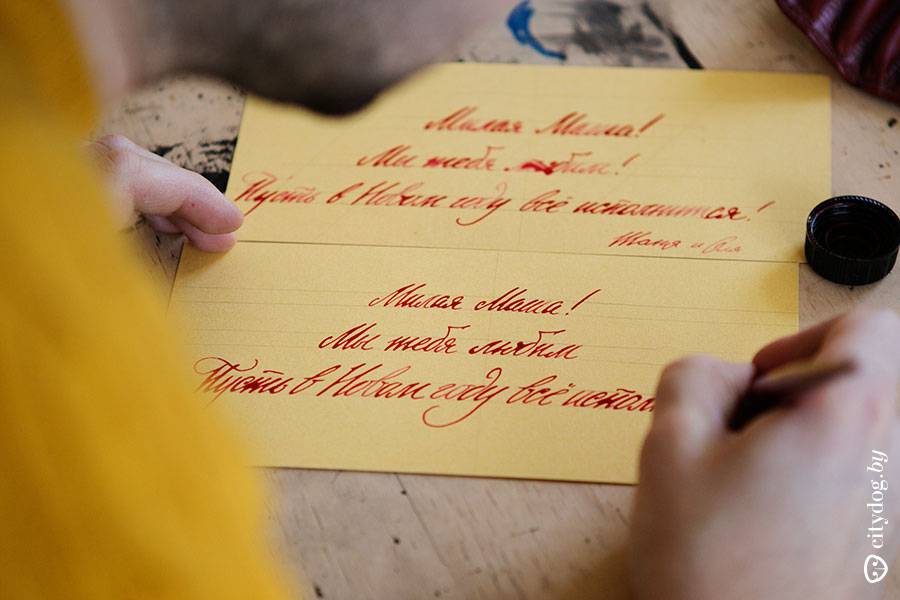 Милая Маша!
Мы тебя любим!
Пусть в Новом году всё исполнится!
Таня и Оля
Милая Маша!
Мы тебя любим
Пусть в Новом году всё исполн
citydog.by